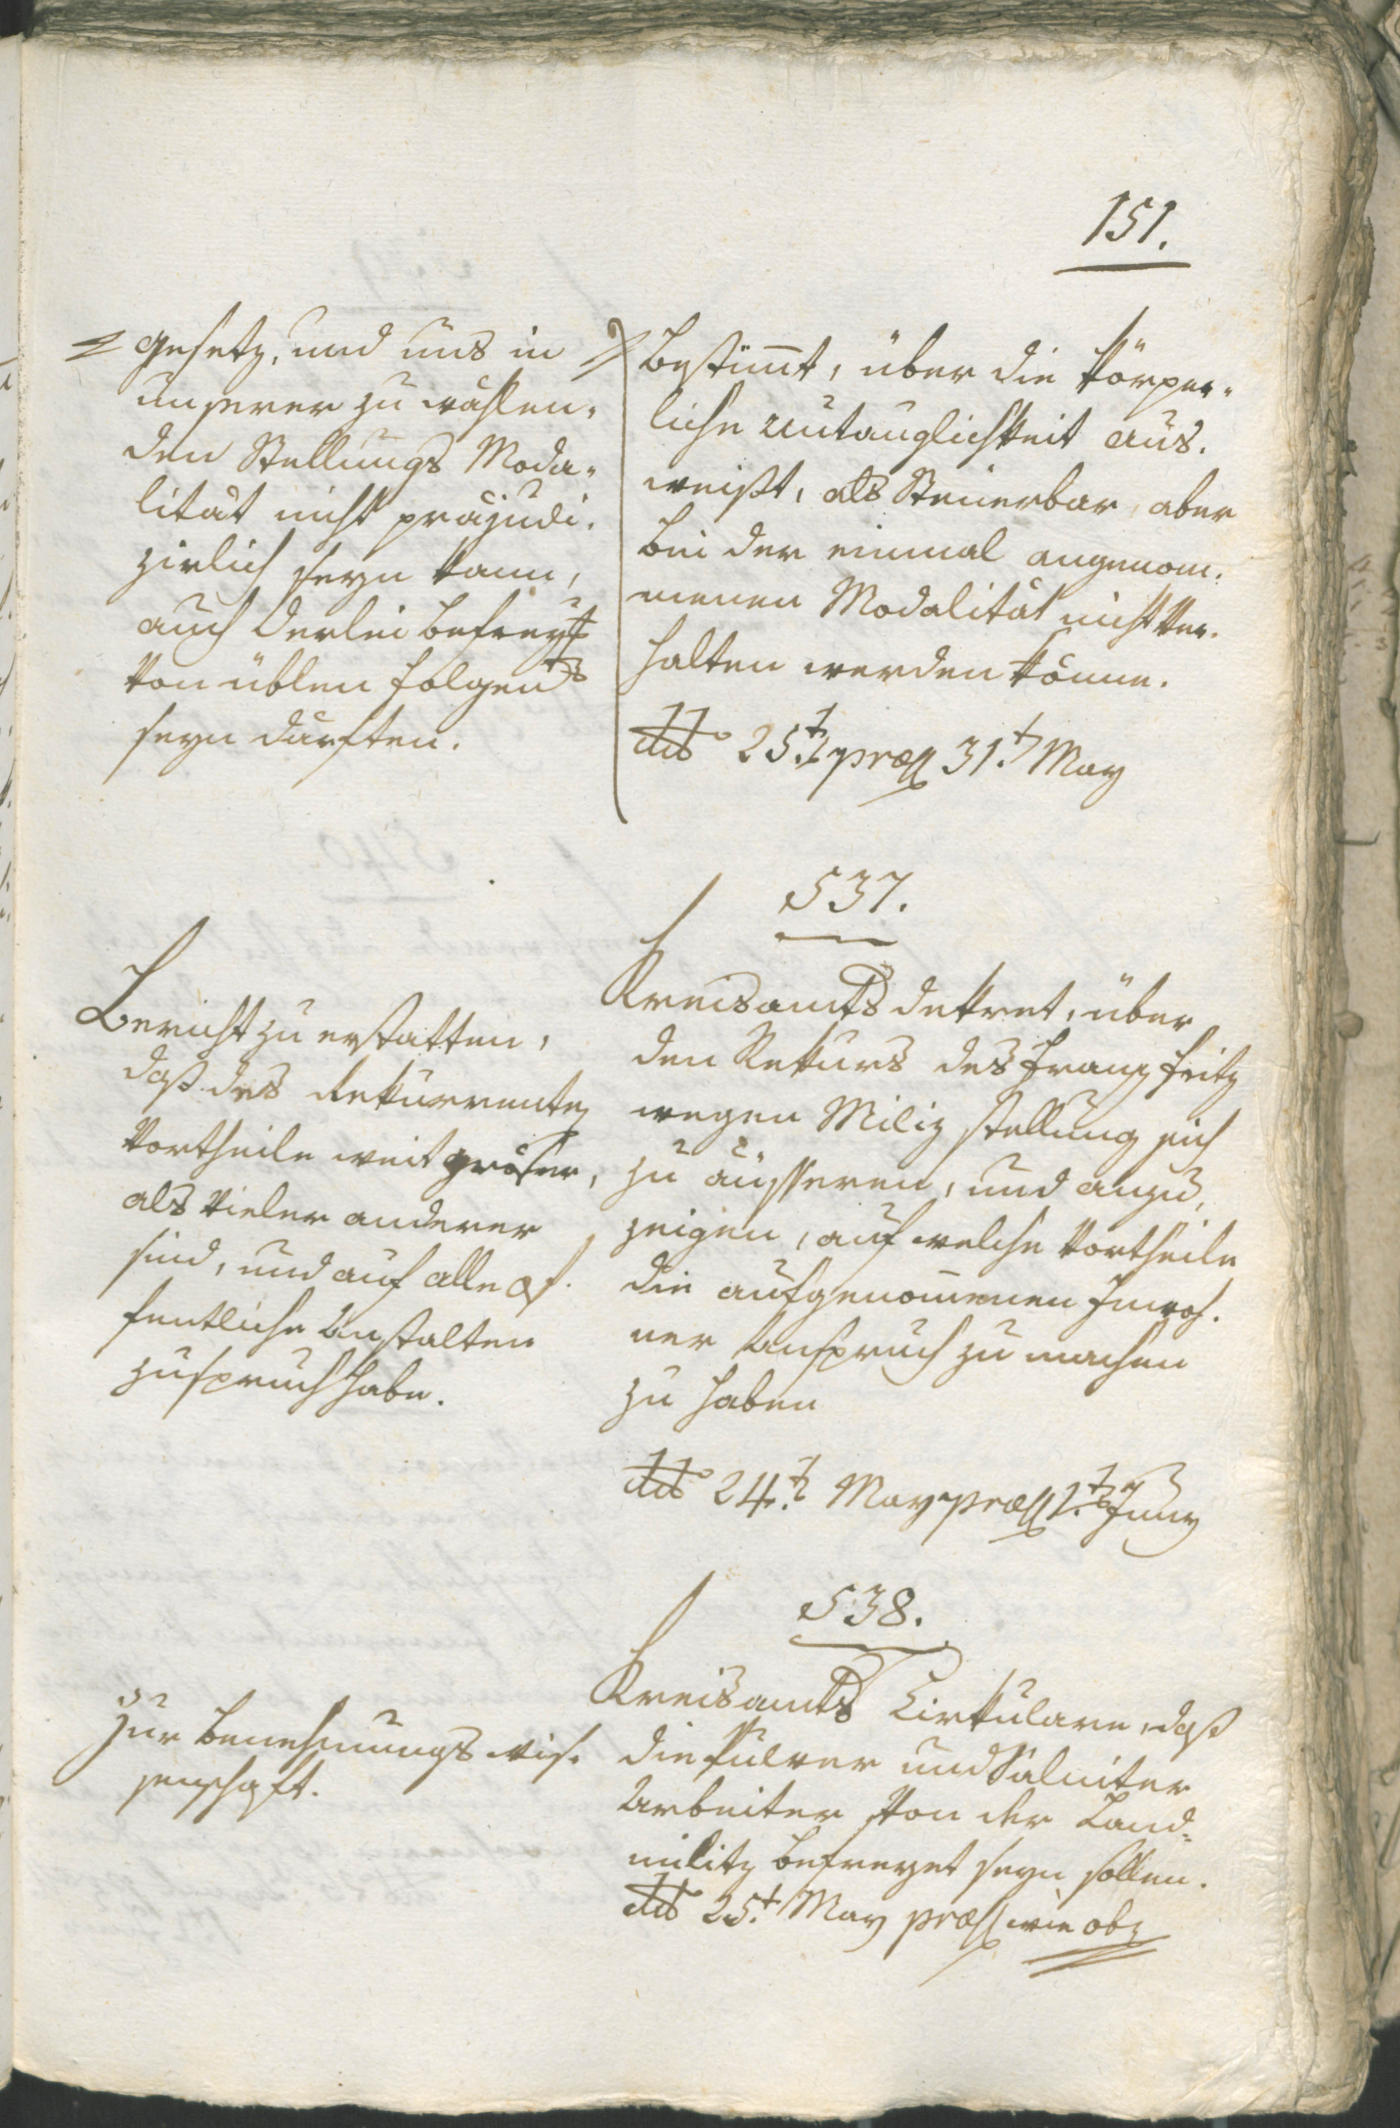 151.
gesetz, und uns in
unserer zu wählen-
den Stellungs Moda-
lität nicht präjudi-
zirlich seyn kann,
auch derlei befreyt
von üblen folgen
seyn dürften.
bestimmt, über die körper-
liche Untauglichkeit aus-
weißt, als Steuerbar, aber
bei der einmal angenom-
menen Modalität nicht ver-
halten werden könne.
ddto 25t præs 31t May
537.
Bericht zu erstatten,
daß des Rekurrenten
Vortheile weit größer,
als vieler anderer
sind, und auf alle öf-
fentliche Anstalten
zuspruch habe.
Kreisamts dekret, über
den Rekurs des Franz Fritz
wegen Miliz stellung sich
zu äusseren, und anzu-
zeigen, auf welche Vortheile
die aufgenommenen Inwoh-
ner Anspruch zu machen
zu haben
ddto 24t May præs 1t Juny
538.
Zur Benehmungs wis-
senschaft.
Kreisamts Cirkulare, daß
die Pulver und Salniter
Arbeiter von der Land-
militz befreyet seyn sollen.
ddto 25t May præs wie ob